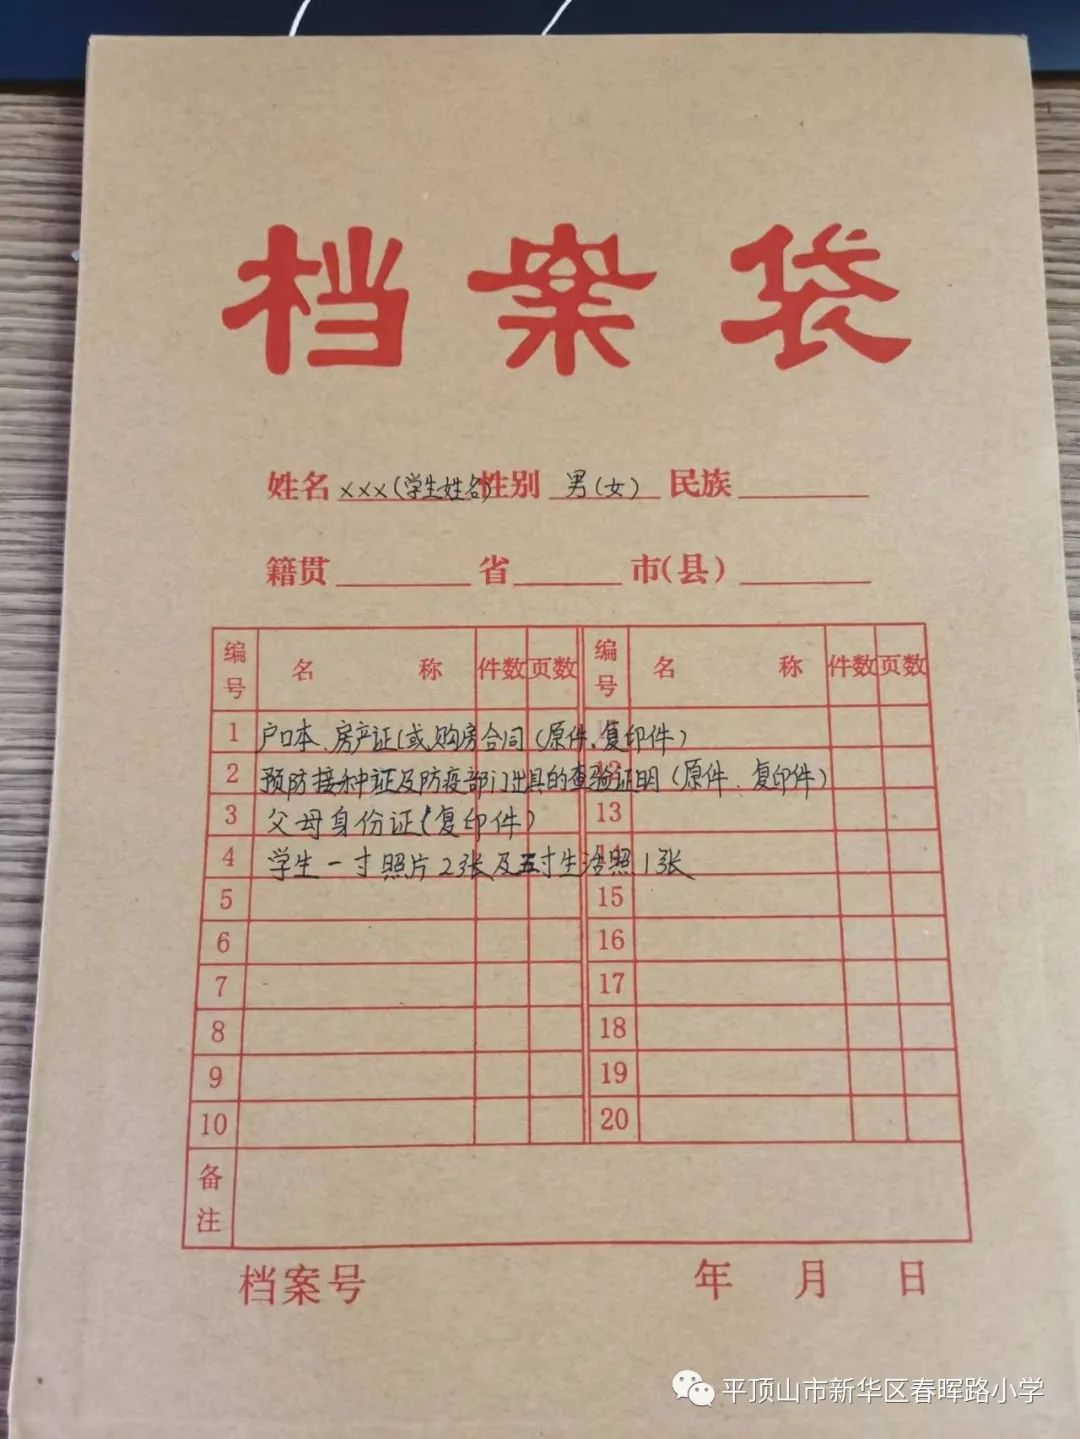 档案袋
姓名 xxx(学生姓名) 性别 男(女) 民族
籍贯 省 市(县)
编号 名称 件数 页数 编号 名称 件数 页数
1 户口本、房产证(或购房合同(原件、复印件)
2 预防接种证及防疫部门出具的查验证明(原件、复印件) 12
3 父母身份证(复印件) 13
4 学生一寸照片2张及五寸生活照1张 14
5 15
6 16
7 17
8 18
9 19
10 20
备注
档案号 年 月 日
平顶山市新华区春晖路小学